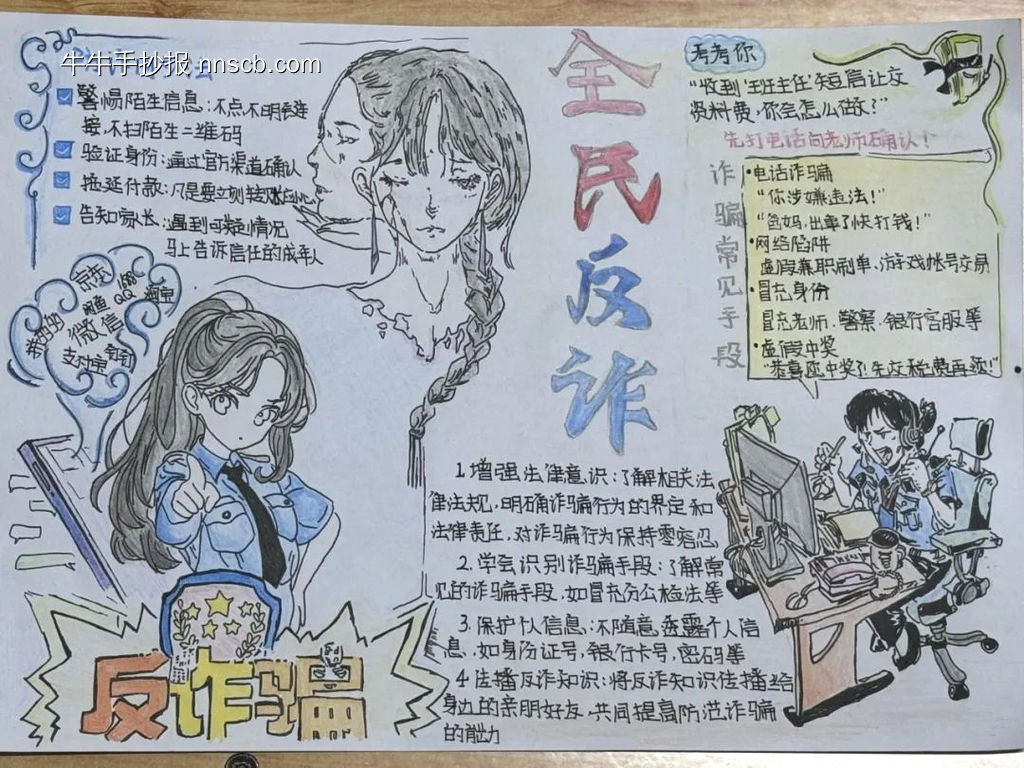 牛牛手抄报 nnscb.com
警惕陌生信息:不点不明链
接,不扫陌生二维码
验证身份:通过官方渠道确认
拖延付款:凡是要立刻转账
告知家长:遇到可疑情况
马上告诉信任的成年人
京东
1688
闲鱼
QQ
淘宝
拼多多
微信
支付宝
钉钉
反诈骗
全民反诈
考考你
“收到‘班主任’短信让交
资料费,你会怎么做?”
先打电话向老师确认!
诈骗常见手段
•电话诈骗
“你涉嫌违法!”
“爸妈,出事了快打钱!”
•网络陷阱
虚假兼职刷单,游戏帐号交易
•冒充身份
冒充老师、警察、银行客服等
•虚假中奖
“恭喜您中奖了!先交税费再领!”
1.增强法律意识:了解相关法
律法规,明确诈骗行为的界定和
法律责任,对诈骗行为保持零容忍,
2.学会识别诈骗手段:了解常
见的诈骗手段,如冒充公检法等
3.保护个人信息:不随意透露个人信
息,如身份证号,银行卡号,密码等
4传播反诈知识:将反诈知识传播给
身边的亲朋好友,共同提高防范诈骗
的能力